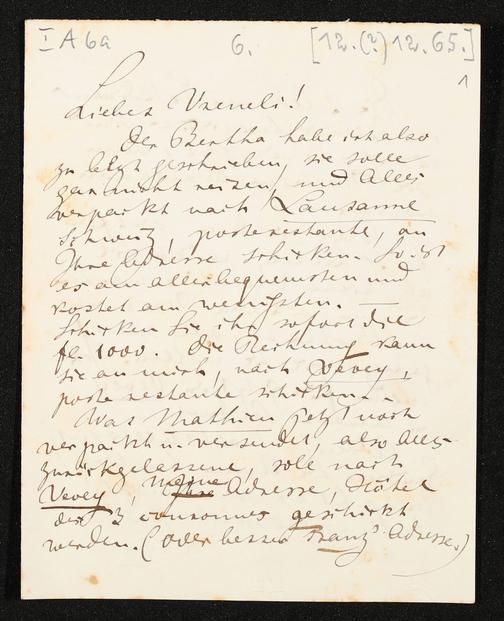 I A 6a 6. [12.(?) 12. 65.]
1
Liebes Vreneli!
Der Bertha habe ich also
zu letzt geschrieben, sie solle
gar nicht reisen, und Alles
verpackt nach Lausanne
Schweiz, poste restante, an
Ihre Adresse schicken. So ist
es am allerbequemsten und
kostet am wenigsten. —
Schicken Sie ihr sofort die
fl. 1000. Die Rechnung kann
sie an mich, nach Vevey,
poste restante schicken. –
Was Mathieu jetzt noch
verpackt u. versendet, also alles
zurückgelassene, solle nach
Vevey, meine Ihre Adresse, Hôtel
des 3 couronnes geschickt
werden. (oder besser Franz' Adresse.)